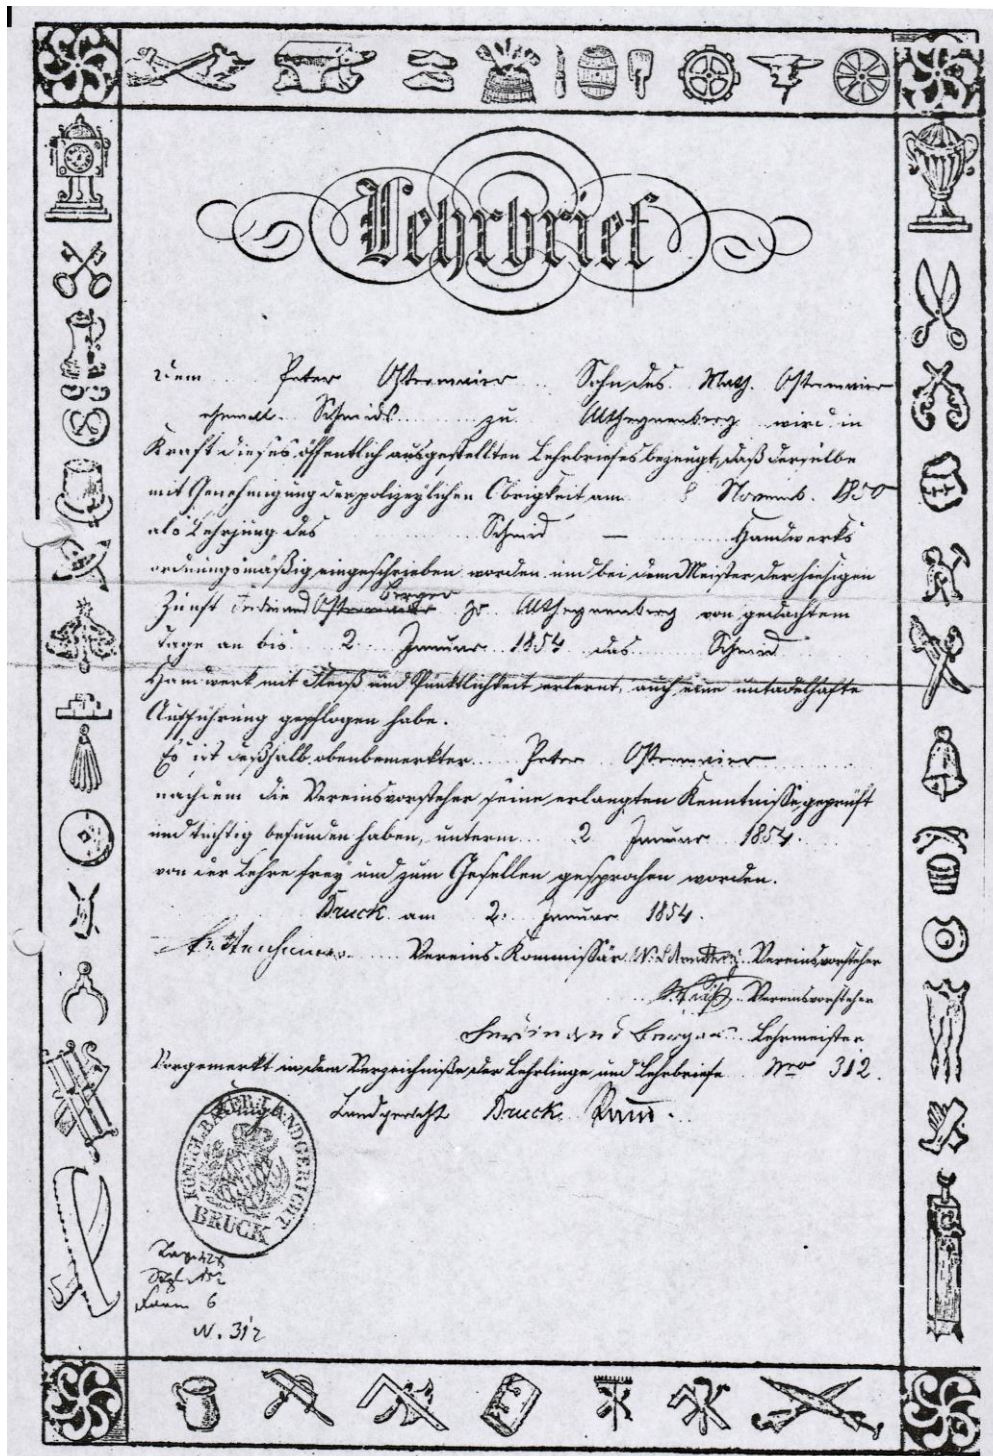 Lehrbrief
Dem Peter Ostermaier Sohn des Math. Ostermaier
ehemal. Schmids zu Althegnenberg wird in
Kraft dieses öffentlich ausgestellten Lehrbriefes bezeugt, daß derselbe
mit Genehmigung der polizeylichen Obrigkeit am 8 Novemb. 1850
als Lehrjung des Schmid — Handwerks
ordnungsmäßig eingeschrieben worden und bei dem Meister der hiesigen
Berger
Zunft Ferdinand zu Althegnenberg von gedachtem
Tage an bis 2. Januar 1854 das Schmid
Handwerk mit Fleiß und Pünktlichkeit erlernt, auch eine untadelhafte
Aufführung gepflogen habe.
Es ist deßhalb obenbemerkter Peter Ostermaier
nachdem die Vereinsvorsteher seine erlangten Kenntnisse geprüft
und tüchtig befunden haben, unterm 2 Januar 1854.
von der Lehre frey und zum Gesellen gesprochen worden.
Bruck am 2. Januar 1854.
Vereins-Kommissär Vereinsvorsteher
Vereinsvorsteher
Ferdinand Berger Lehrmeister
Vorgemerkt in dem Verzeichniße der Lehrlinge und Lehrbriefe Nro 312.
Landgericht Bruck
KÖNIGL. BAYER. LANDGERICHT
BRUCK
6
N. 312